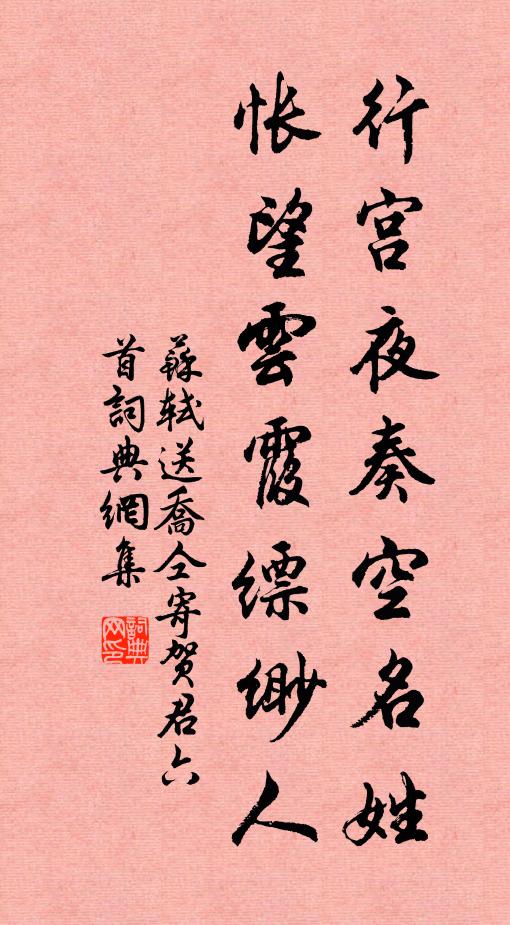 行宫夜奏空名姓
怅望雲霞缥缈人
蘇軾送喬仝寄贺君六
首詞典網集
詞典
网印